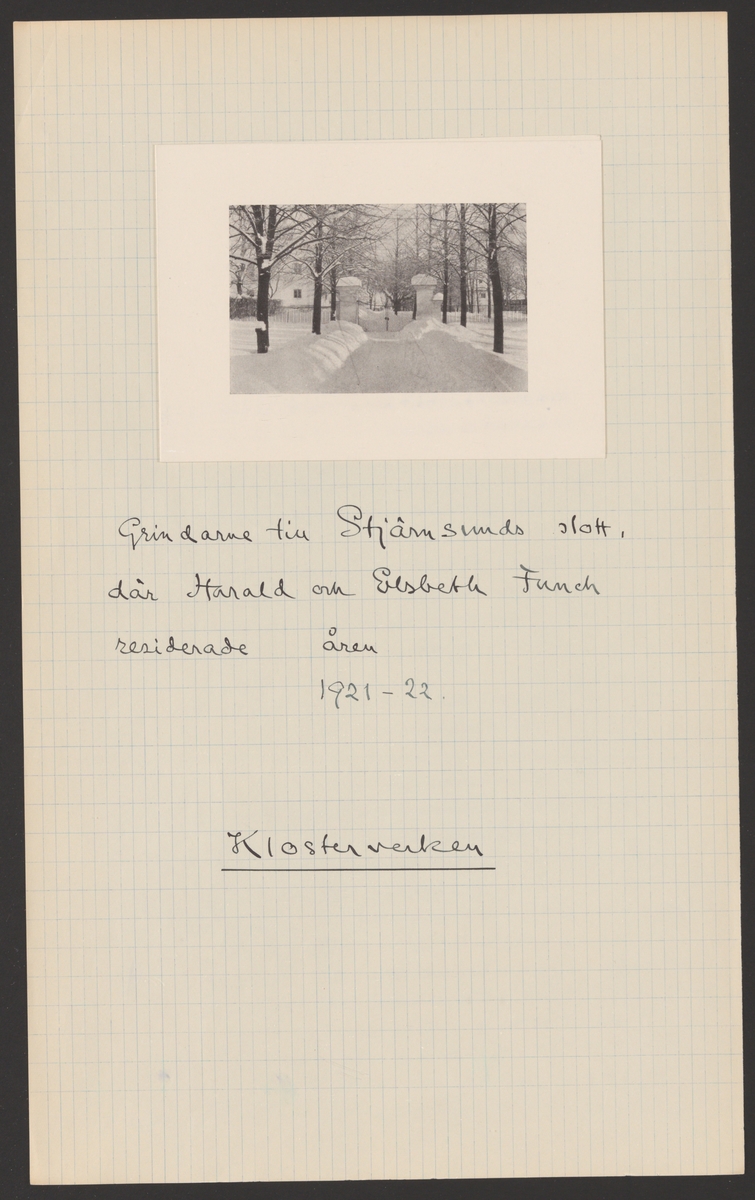 Grindarne till Stjärnsunds slott,
där Harald och Elsbeth Funch
residerade åren
1921-22.
Klosterverken